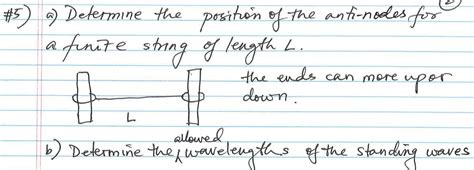 #5) a) Determine the position of the anti-nodes for
a finite string of length L.
the ends can move up or
down.
L
allowed
b) Determine the wavelengths of the standing waves